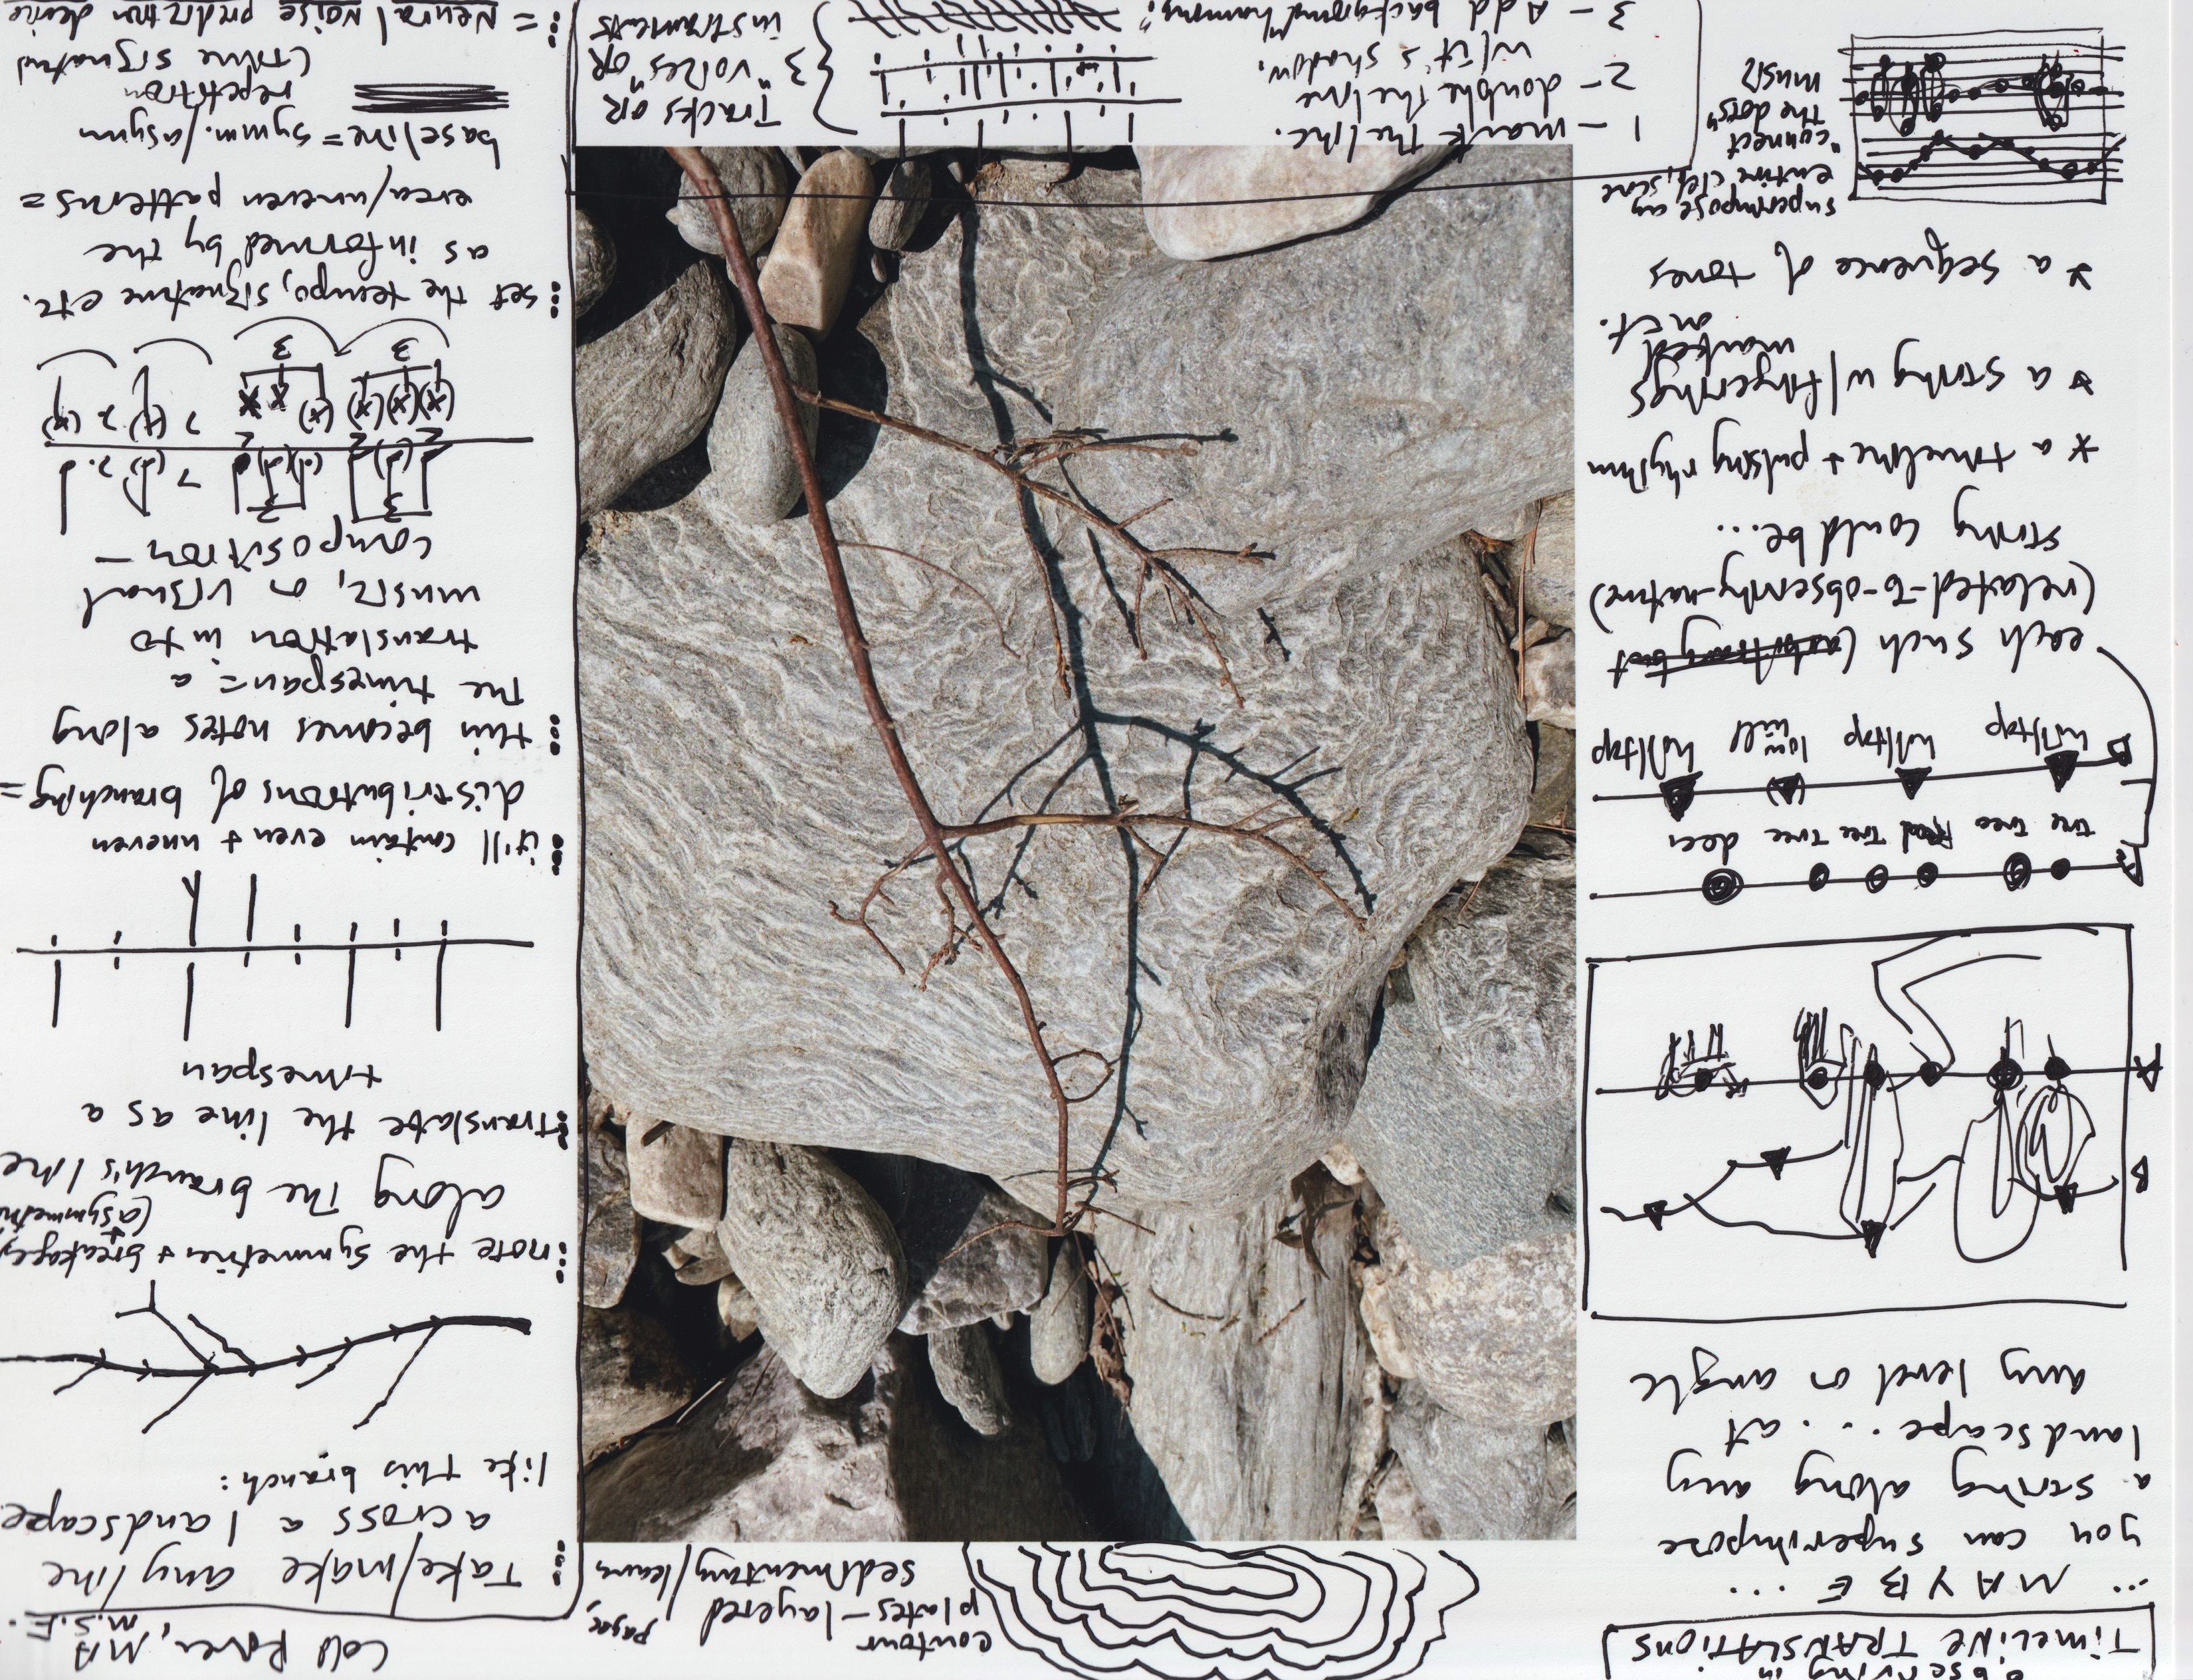 observing in
TIMELINE TRANSLATIONS
... MAYBE ...
you can superimpose
a string along any
landscape... at
any level or angle
B
A
A
tree tree Road tree tree deer
B
hilltop hilltop low hill hilltop
each such
(related-to-observing-nature)
string could be...
* a timeline + pulsing rhythm
* a string w/ fingerings
marked
on it.
* a sequence of tones
superimpose any
entire clef, score
"connect
the dots"
music
contour
plates - layered pages
sedimentary/leaves
1 - mark the line.
2 - double the line
w/ it's shadow.
3 - Add background harmony?
3
Tracks OR
"voices" OR
instruments
Cold River, MA
M.S.E.
Take/make any line
across a landscape
like this branch:
note the symmetries + breakages
(asymmetries
along the branch's line
translate the line as a
timespan
it'll contain even + uneven
distributions of branching =
this becomes notes along
the timespan = a
translation into
music, or visual
composition -
3
3
3
3
set the tempo, signature etc.
as informed by the
even/uneven patterns =
baseline = symm./asymm
repetition
(time signature
= Neural Noise prediction device